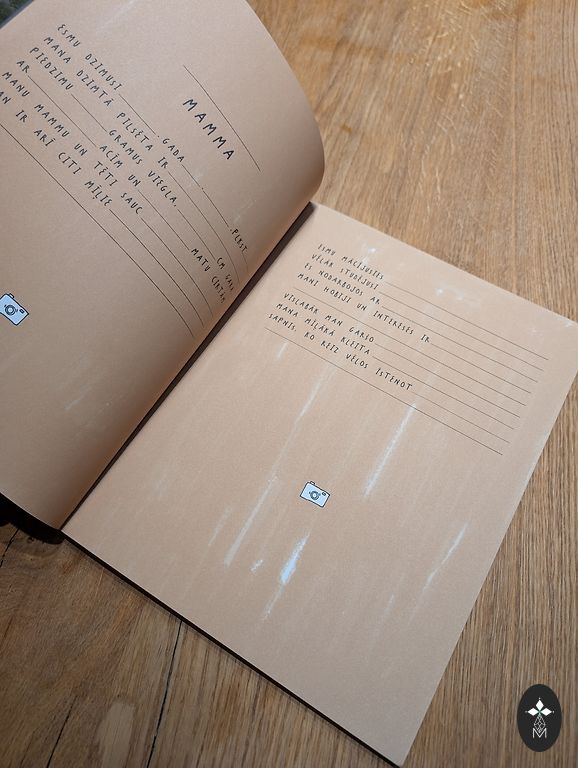 MAMMA
ESMU DZIMUSI . GADA . PLKST.
MANA DZIMTĀ PILSĒTA IR
PIEDZIMU GRAMUS VIEGLA, CM GARA
AR ACĪM UN MATU
MANU MAMMU UN TĒTI SAUC
IR ARĪ CITI MĪĻIE
ESMU MĀCĪJUSIES
VĒLĀK STUDĒJUSI
ES NODARBOJOS AR
MANI HOBIJI UN INTERESES IR
VISLABĀK MAN GARŠO
MANA MĪĻĀKĀ KLEITA
SAPNIS, KO REIZ VĒLOS ĪSTENOT
M